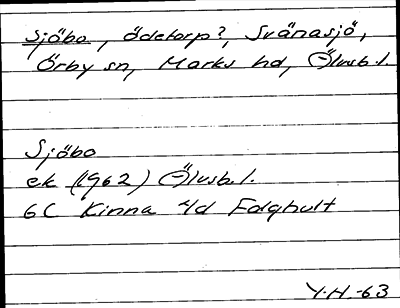 Sjöbo, Ödetorp?, Svänasjö,
Örby sn, Marks hd, Älvsb.l.
Sjöbo
ek (1962) Älvsb.l.
6C Kinna 4d Faghult
Y.H.-63